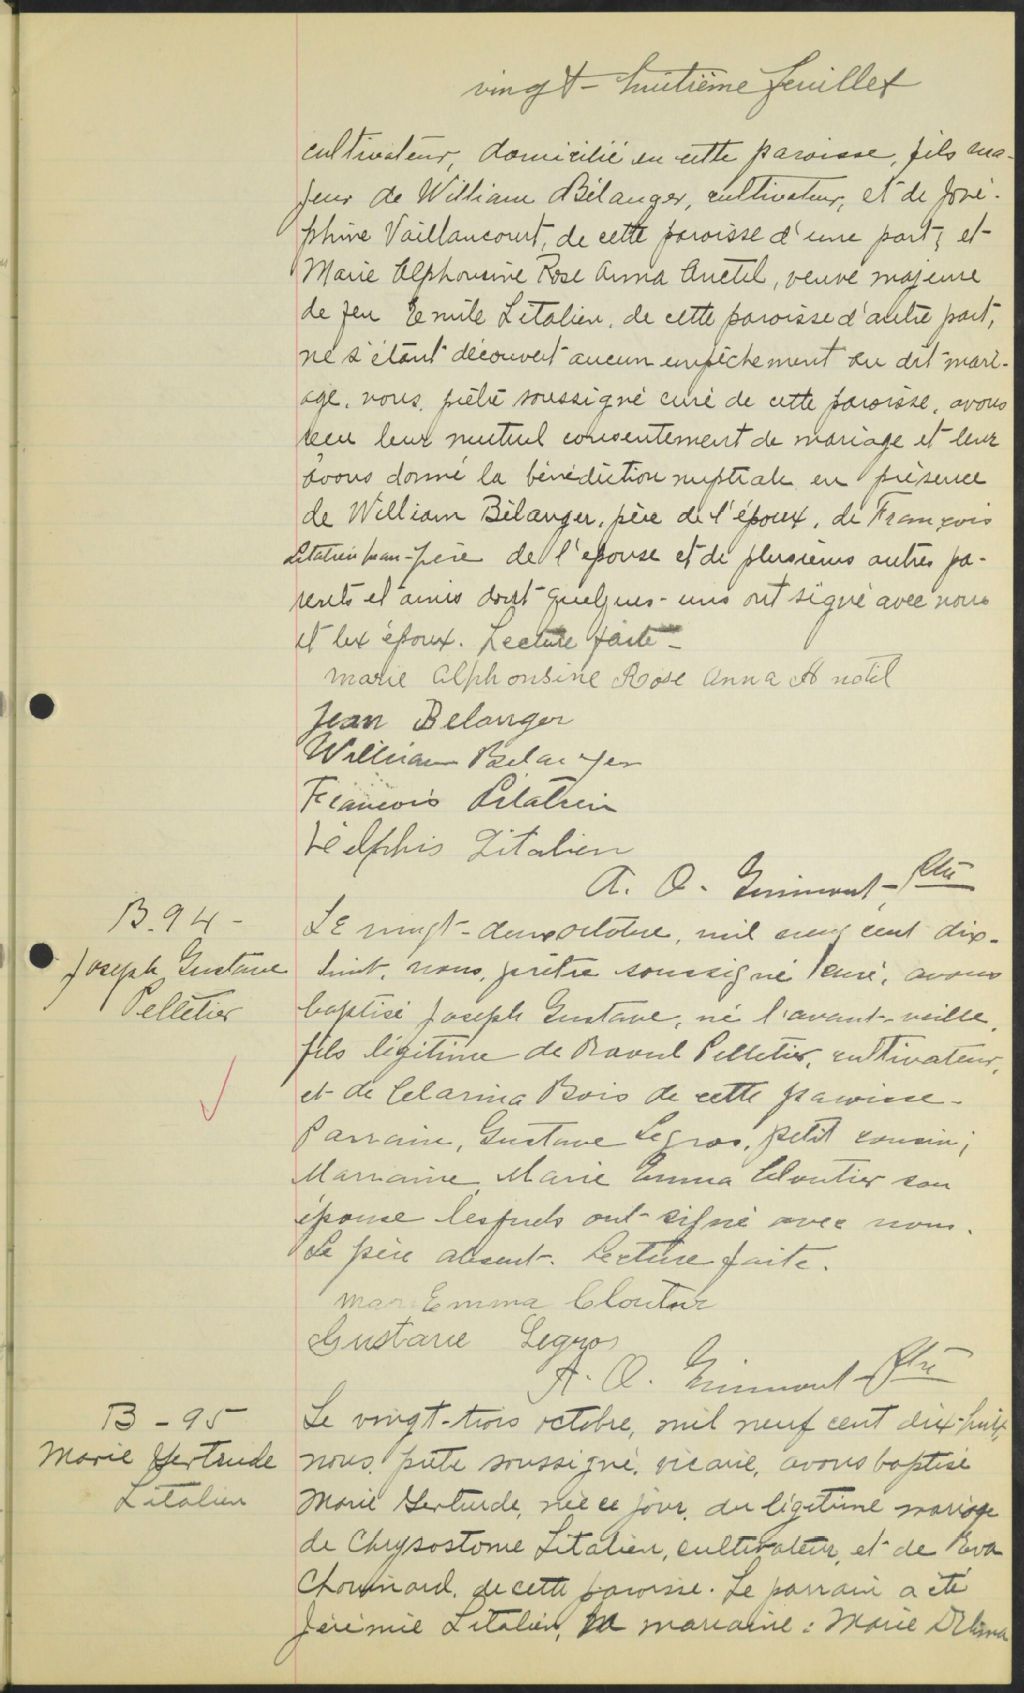 vingt-huitième feuillet
cultivateur, domicilié en cette paroisse, fils ma-
jeur de William Bélanger, cultivateur, et de José-
phine Vaillancourt, de cette paroisse d'une part; et
Marie Alphonsine Rose Anna Anctil, veuve majeure
de feu Emile Litalien, de cette paroisse d'autre part,
ne s'étant découvert aucun empêchement au dit mari-
age, nous, prêtre soussigné curé de cette paroisse, avons
reçu leur mutuel consentement de mariage et leur
avons donné la bénédiction nuptiale en présence
de William Bélanger, père de l'époux, de François
Litalien beau-père de l'épouse et de plusieurs autres pa-
rents et amis dont quelques-uns ont signé avec nous
et les époux. Lecture faite -
marie Alphonsine Rose Anna Anctil
Jean Belanger
William Belanger
Francois Litalien
Delphis Litalien
A. O. Guimont, Ptre
B. 94 -
Joseph Gustave
Pelletier
Le vingt-deux octobre, mil neuf cent dix-
huit, nous, prêtre soussigné curé, avons
baptisé Joseph Gustave, né l'avant-veille,
fils légitime de Raoul Pelletier, cultivateur,
et de Clarina Bois de cette paroisse.
Parrain, Gustave Legros, petit cousin;
Marraine, Marie Emma Cloutier son
épouse lesquels ont signé avec nous.
Le père absent. Lecture faite.
Marie Emma Cloutier
Gustave Legros
A. O. Guimont Ptre
B - 95
Marie Gertrude
Litalien
Le vingt-trois octobre, mil neuf cent dix-huit,
nous, prêtre soussigné, vicaire, avons baptisé
Marie Gertrude, née ce jour, du légitime mariage
de Chrysostome Litalien, cultivateur, et de Eva
Chouinard, de cette paroisse. Le parrain a été
Jérémie Litalien, la marraine: Marie Délima